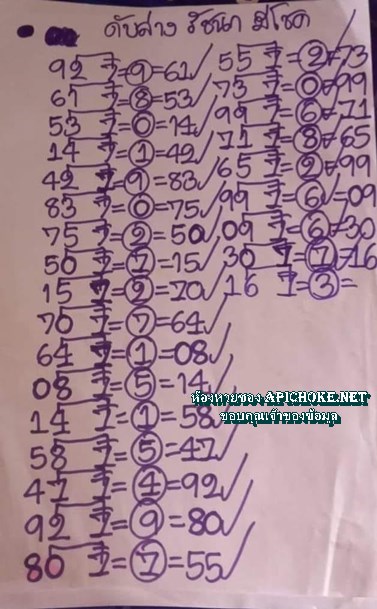 ดับล่าง รัชนก มีโชค
92 7 = 9 = 61 ✓
61 7 = 8 = 53 ✓
53 7 = 0 = 14 ✓
14 7 = 1 = 42 ✓
42 7 = 9 = 83 ✓
83 7 = 0 = 75 ✓
75 7 = 2 = 50 ✓
50 7 = 7 = 15 ✓
15 7 = 2 = 70 ✓
70 7 = 7 = 64 ✓
64 7 = 1 = 08 ✓
08 7 = 5 = 14 ✓
14 7 = 1 = 58 ✓
58 7 = 5 = 47 ✓
47 7 = 4 = 92 ✓
92 7 = 9 = 80 ✓
80 7 = 7 = 55 ✓
55 7 = 2 = 73
73 7 = 0 = 99
99 7 = 6 = 71
71 7 = 8 = 65
65 7 = 2 = 99
99 7 = 6 = 09
09 7 = 6 = 30
30 7 = 7 = 16
16 7 = 3 =
ห้องหวยซอง APICHOKE.NET
ขอบคุณเจ้าของข้อมูล